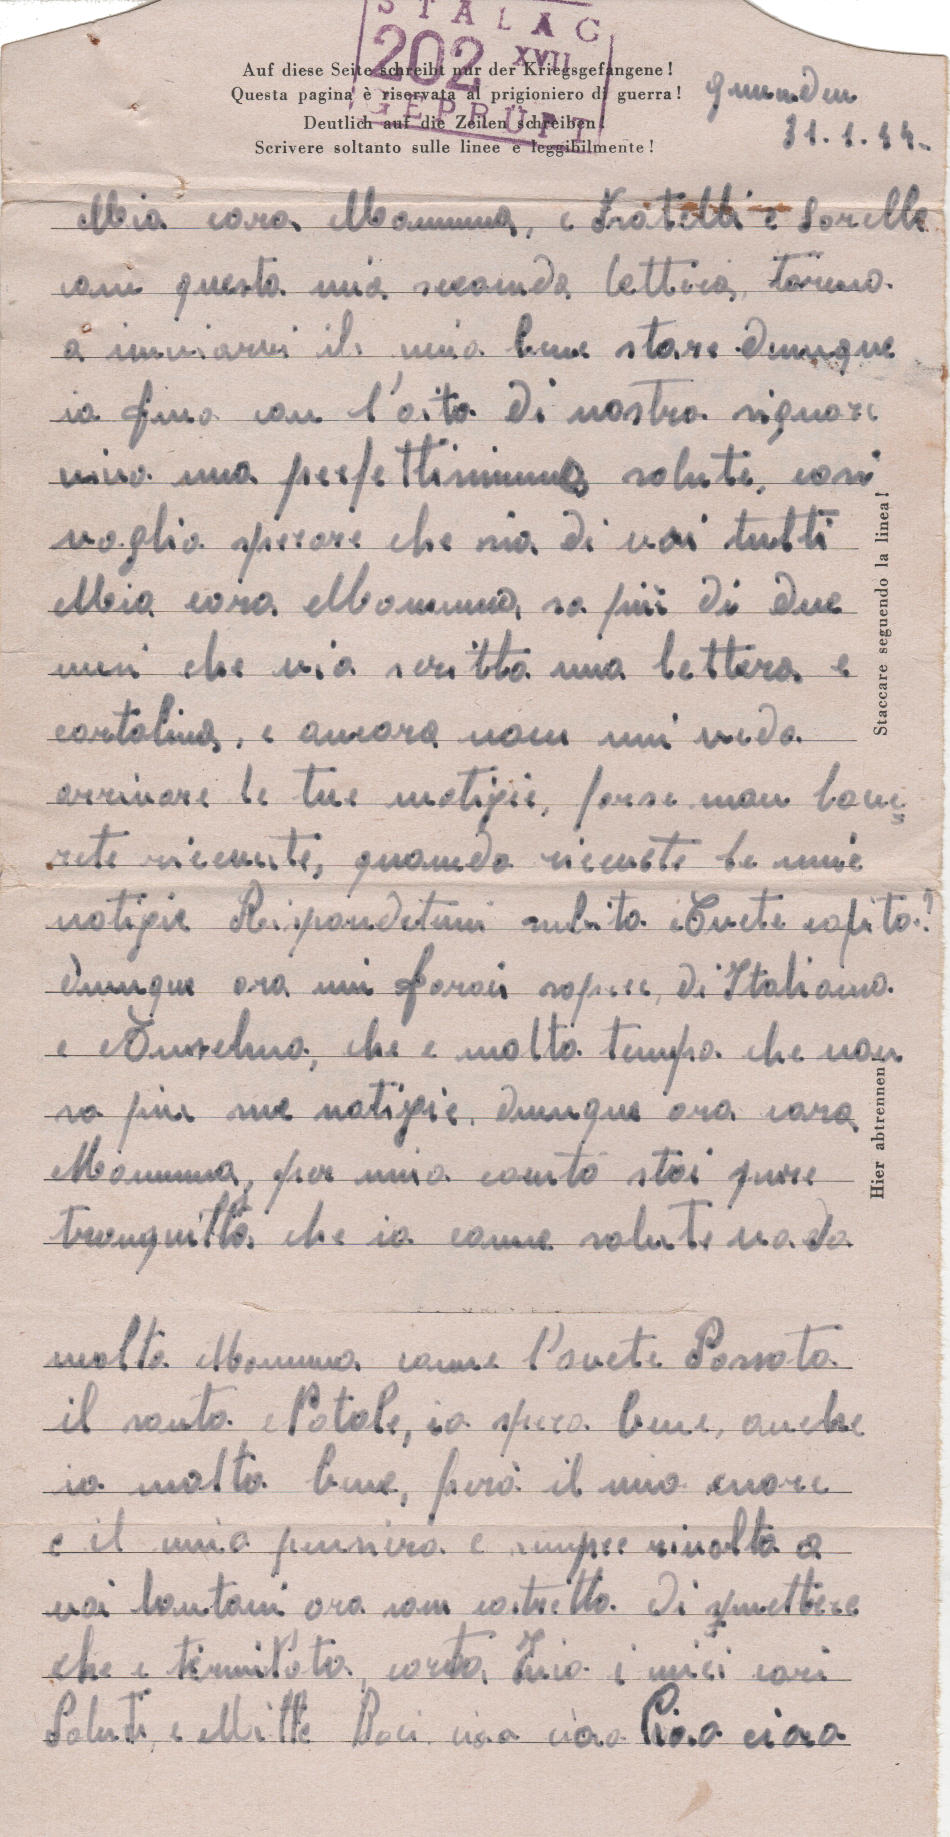 STALAG
XVII
202
GEPRÜFT
Auf diese Seite schreibt nur der Kriegsgefangene!
Questa pagina è riservata al prigioniero di guerra!
Deutlich auf die Zeilen schreiben!
Scrivere soltanto sulle linee e leggibilmente!
Gmunden
31.1.44.
Mia cara Mamma, e Fratelli e Sorelle
con questa mia seconda lettera, torno
a inviarvi il mio bene stare dunque
io fino con l'aito di nostro signore
vivo una perfettisimma salute, così
voglio sperare che sia di voi tutti
Mia cara Mamma, so più di due
mesi che via scritto una lettera e
cartolina, e ancora non mi vedo
arrivare le tue notizie, forse non lave
rete ricevute, quando ricevete le mie
notizie Rispondetemi subito Avete capito?
dunque ora mi farai sapere, di Italiano
e Anselmo, che e molto tempo che non
so più sue notizie, dunque ora cara
Mamma, per mio conto stai pure
tranquilla che io come salute vado
Staccare seguendo la linea!
Hier abtrennen!
molto Mamma come l'avete Passato
il santo Natale, io spero bene, anche
io molto bene, però il mio cuore
e il mio pensiero e sempre rivolto a
voi lontani ora son costretto di smettere
che e terminata carta, i miei cari
Saluti, e Mille Baci ciao ciao Ciao ciao